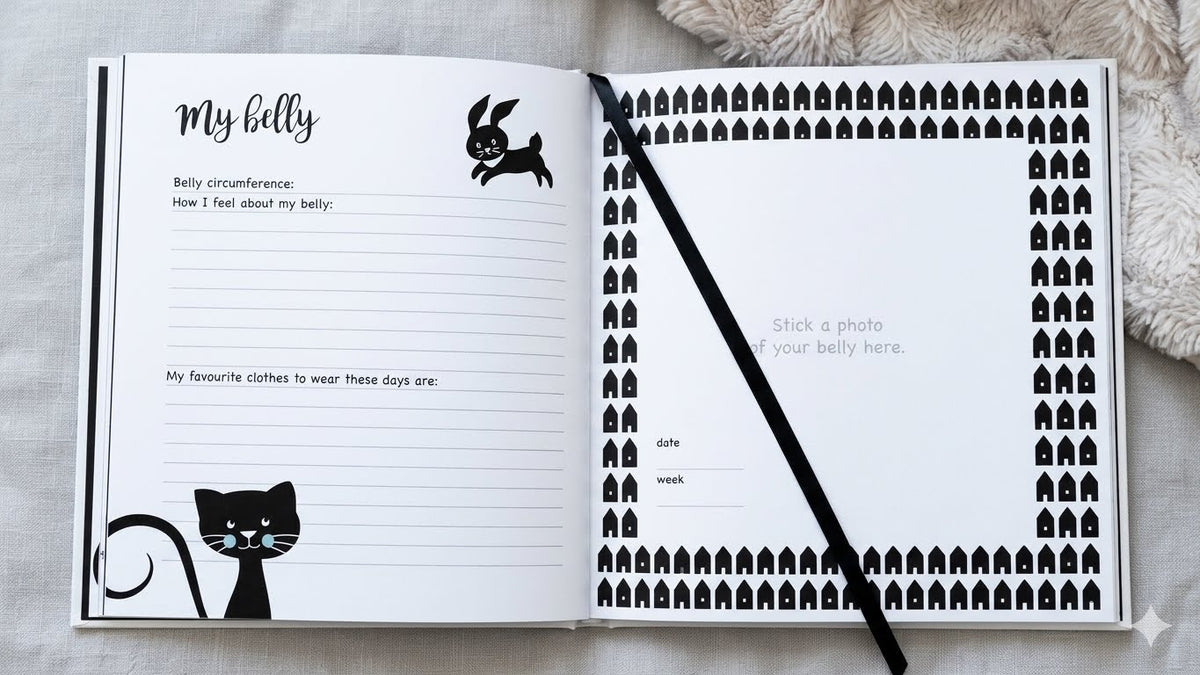 My belly
Belly circumference:
How I feel about my belly:
My favourite clothes to wear these days are:
Stick a photo
of your belly here.
date
week